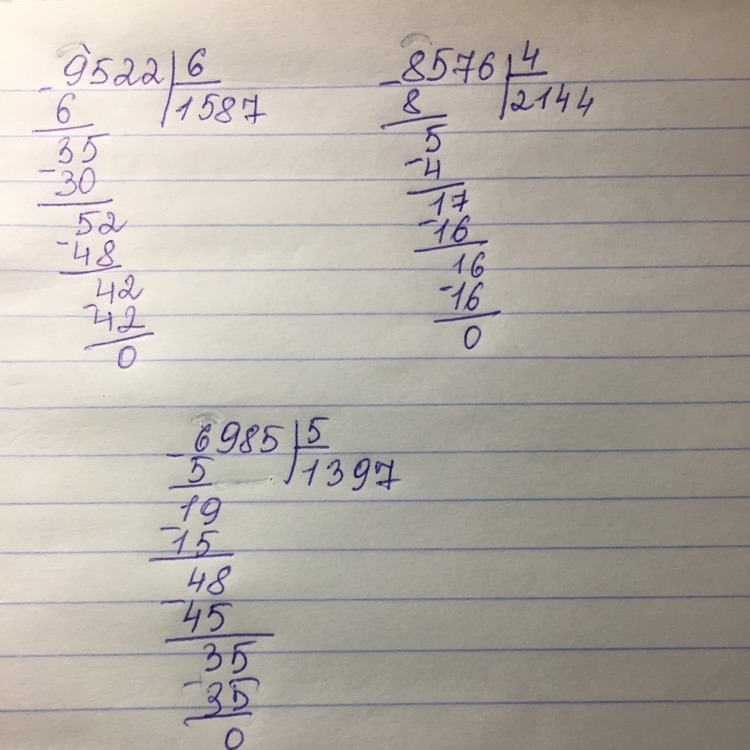 9522 6
- 6 1587
35
- 30
52
- 48
42
- 42
0
8576 4
- 8 2144
5
- 4
17
- 16
16
- 16
0
6985 5
- 5 1397
19
- 15
48
- 45
35
- 35
0